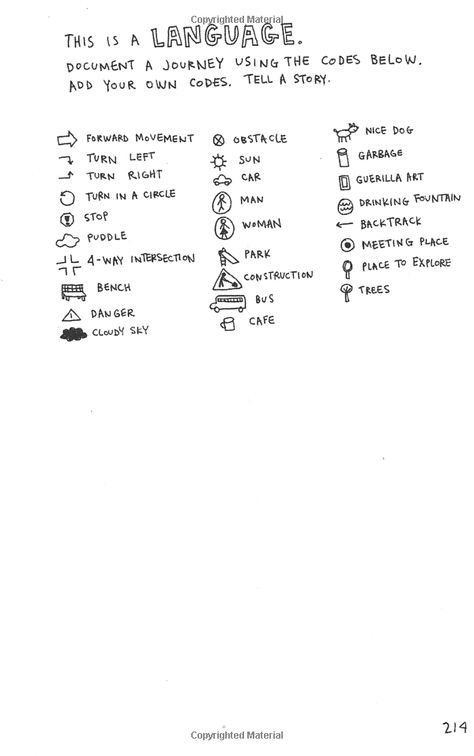 Copyrighted Material
THIS IS A LANGUAGE.
DOCUMENT A JOURNEY USING THE CODES BELOW.
ADD YOUR OWN CODES. TELL A STORY.
FORWARD MOVEMENT
TURN LEFT
TURN RIGHT
TURN IN A CIRCLE
STOP
PUDDLE
4-WAY INTERSECTION
BENCH
DANGER
CLOUDY SKY
OBSTACLE
SUN
CAR
MAN
WOMAN
PARK
CONSTRUCTION
BUS
CAFE
NICE DOG
GARBAGE
GUERILLA ART
DRINKING FOUNTAIN
BACKTRACK
MEETING PLACE
PLACE TO EXPLORE
TREES
214
Copyrighted Material